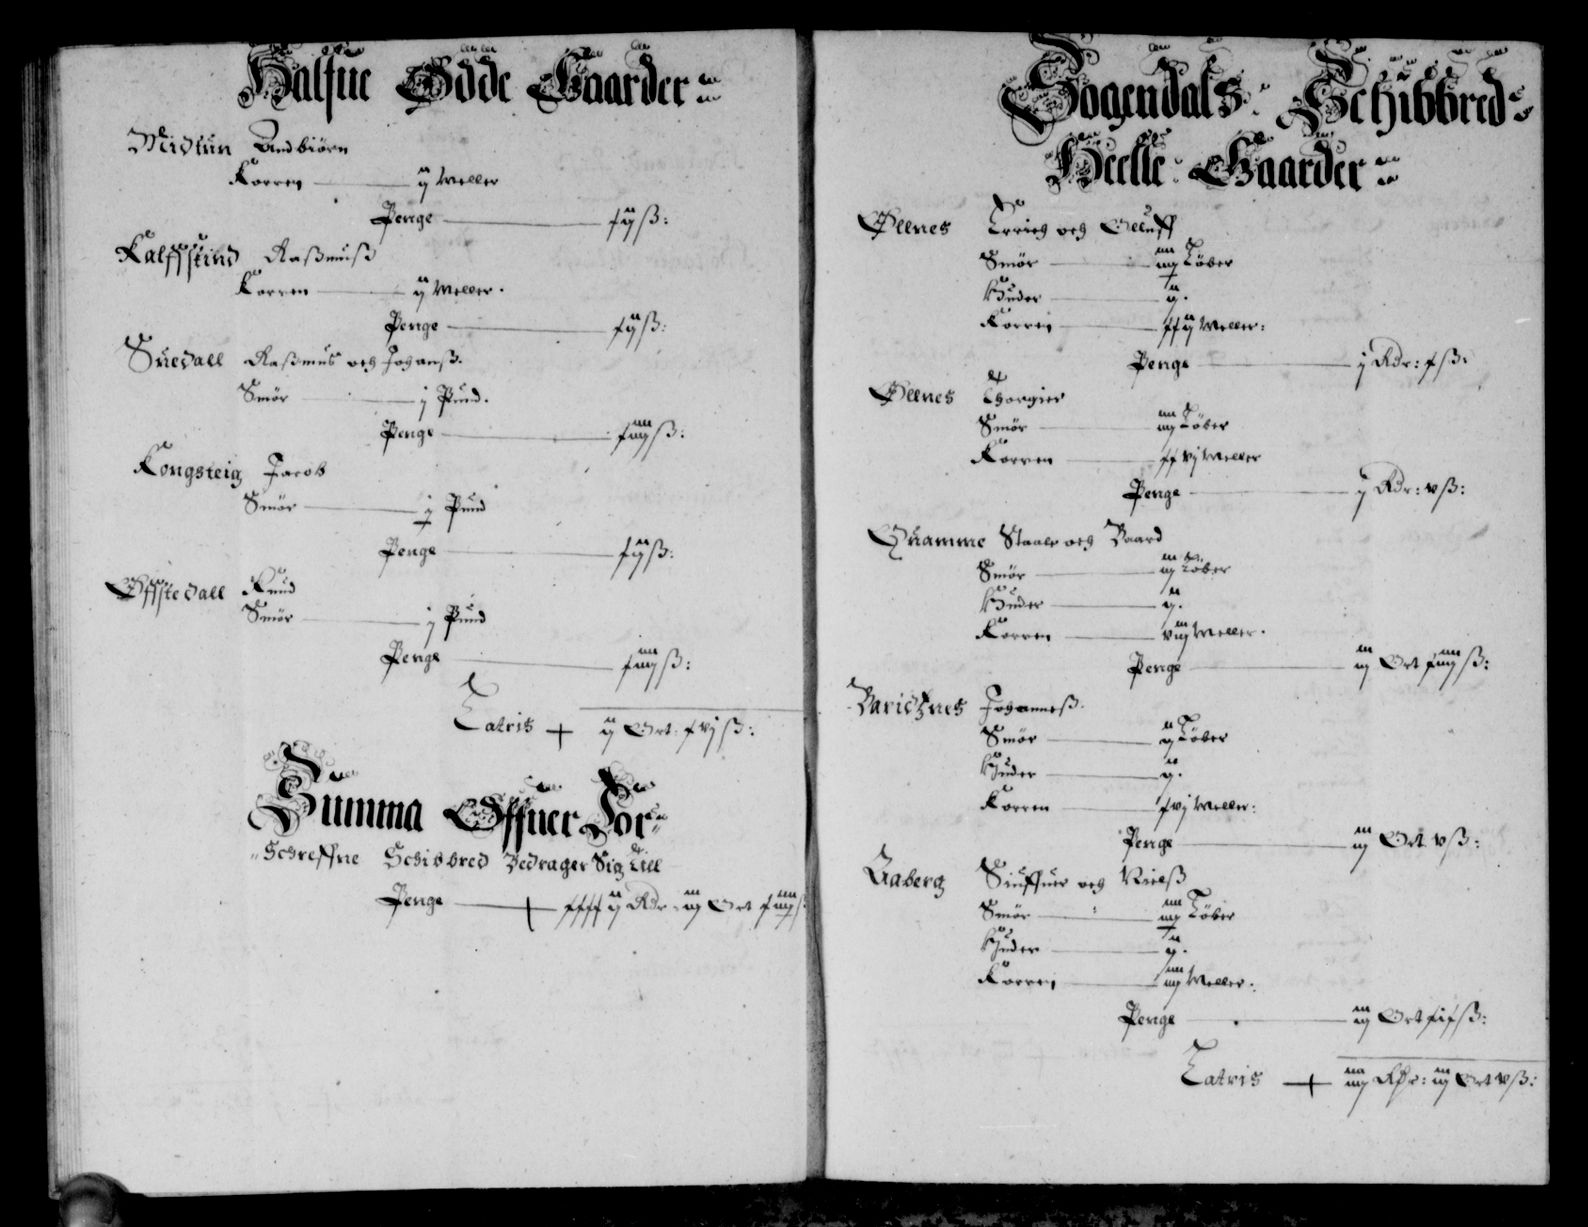 Halfue Ødde Gaarder
Midtun Andbiörn
Korren ij Meller
Penge xij ß:
Kalffskind Rasmuss
Korren ij Meller.
Penge xij ß:
Suedall Rasmus och Johanss.
Smör j Pund.
Penge xiiij ß:
Kongsteig Jacob
Smör j Pund
Penge xij ß:
Offstedall Knud
Smör j Pund
Penge xiiij ß:
Latris + ij Ort: xvj ß:
Summa Offuer For
Schreffne Schibbred Bedrager Sig Till
Penge + xxxxij Rdr iij Ort xiiij ß
Sogendals Schibbred
Heelle Gaarder
Øllnes Erich och Oluff
Smör iiij Löber
Huder ij.
Korren xxij Meller:
Penge j Rdr: x ß:
Øllnes Thorgier
Smör iiij Löber
Korren xxvj Meller
Penge j Rdr: v ß:
Quamme Staale och Baard
Smör iij Löber
Huder ij.
Korren viij Meller.
Penge iij Ort xiiij ß:
Johanness.
Smör ij Löber
Huder ij.
Korren xvj Meller:
Penge iij Ort v ß:
Aaberg Siuffuer och Nielss
Smör iiij Löber
Huder ij.
Korren iiij Meller.
Penge iij Ort xix ß:
Latris + iiij Rdr: iij Ort v ß: